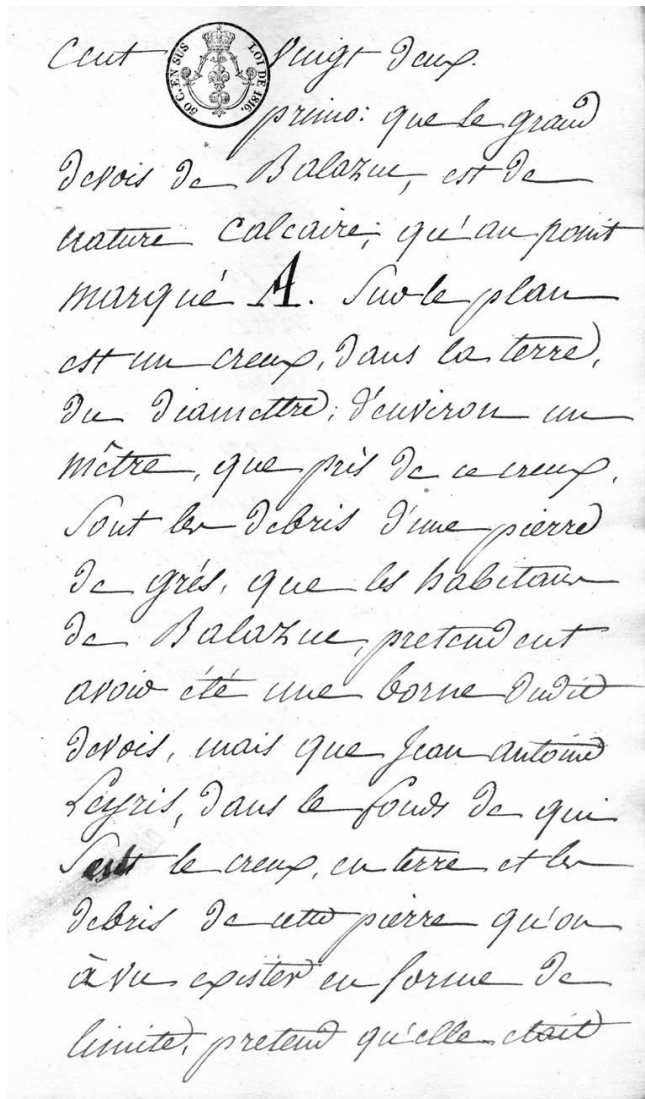 Cent vingt deux.
50 C. EN SUS LOI DE 1816.
primo: que le grand
devois de Balazuc, est de
nature calcaire; qu'au point
marqué A. Sur le plan
est un creux, dans la terre,
du diamettre, d'environ un
mêtre, que près de ce creux,
Sont les debris d'une pierre
de grés, que les habitans
de Balazuc, pretendent
avoir été une borne dudit
devois, mais que Jean antoine
Leyris, dans le fonds de qui
est le creux, en terre et les
debris de cette pierre qu'on
à vu exister en forme de
limite, pretend qu'elle était